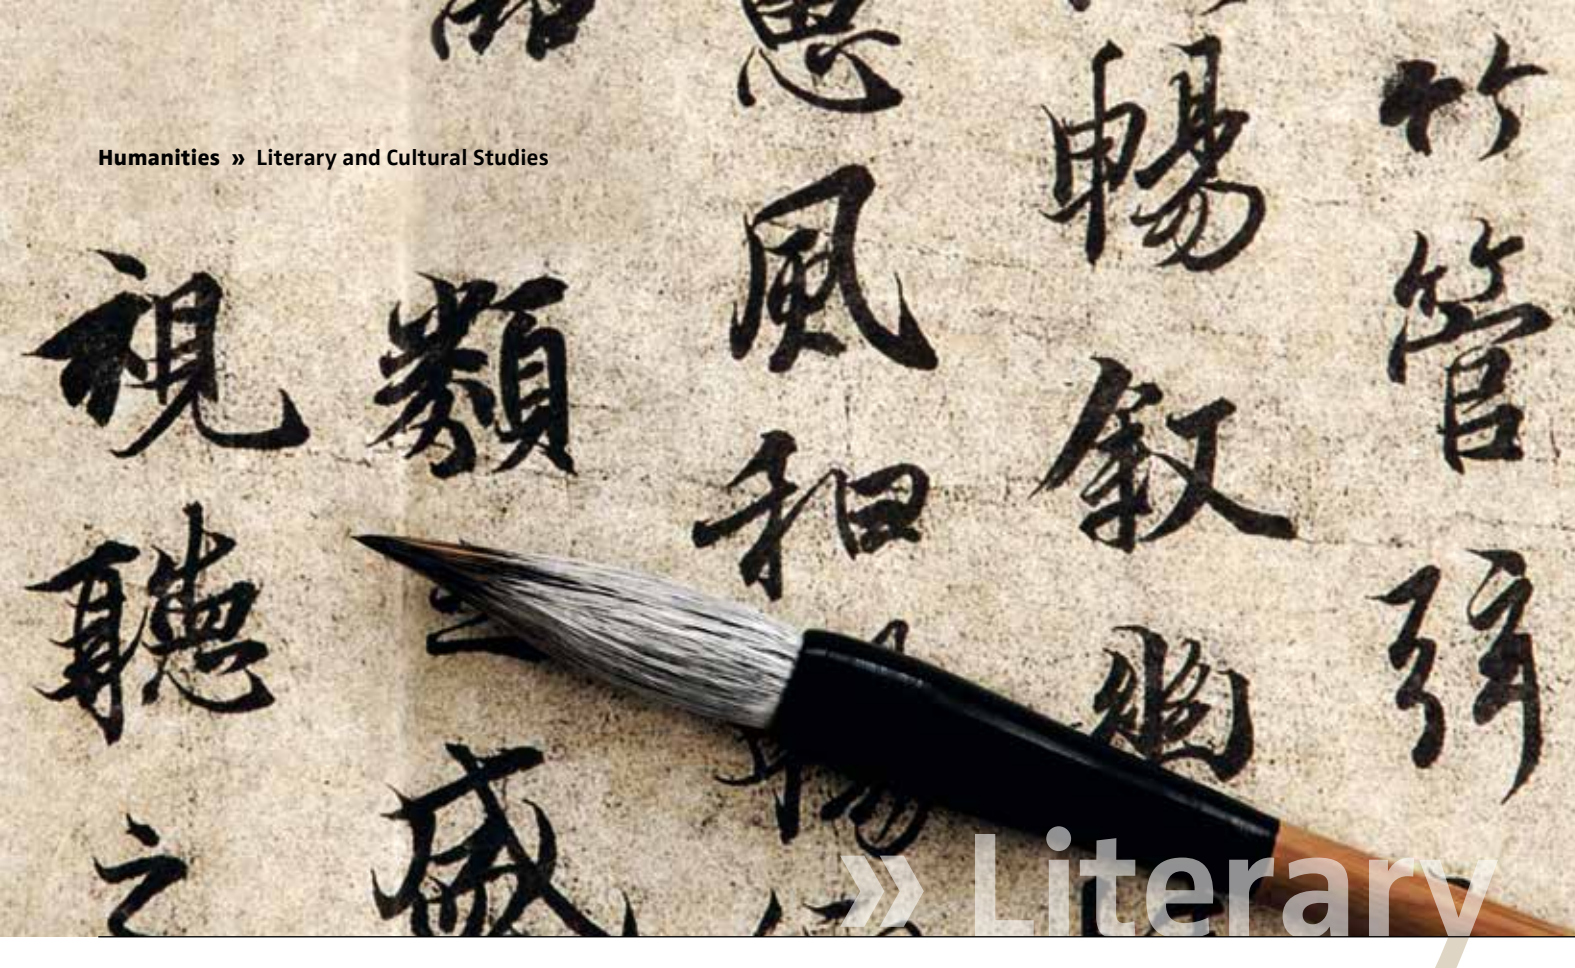 Humanities » Literary and Cultural Studies
竹管弦
暢叙幽
惠風和
類盛
視聽之
» Literary